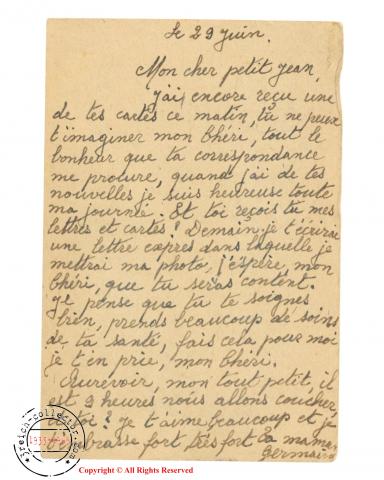 Le 29 Juin.
Mon cher petit Jean,
j'ai encore reçu une
de tes cartes ce matin, tu ne peux
t'imaginer mon Chéri, tout le
bonheur que ta correspondance
me procure, quand j'ai de tes
nouvelles je suis heureuse toute
ma journée. Et toi reçois tu mes
lettres et cartes? Demain je t'écrirai
une lettre exprès dans laquelle je
mettrai ma photo, j'espère, mon
Chéri, que tu seras content.
Je pense que tu te soignes
bien, prends beaucoup de soins
de ta santé, fais cela pour moi
je t'en prie, mon Chéri.
Aurevoir, mon tout petit, il
est 9 heures nous allons coucher,
et toi? Je t'aime beaucoup et je
t'embrasse fort très fort Ta maman
Germaine
3reich-collector.com
1933-1945
Copyright © All Rights Reserved